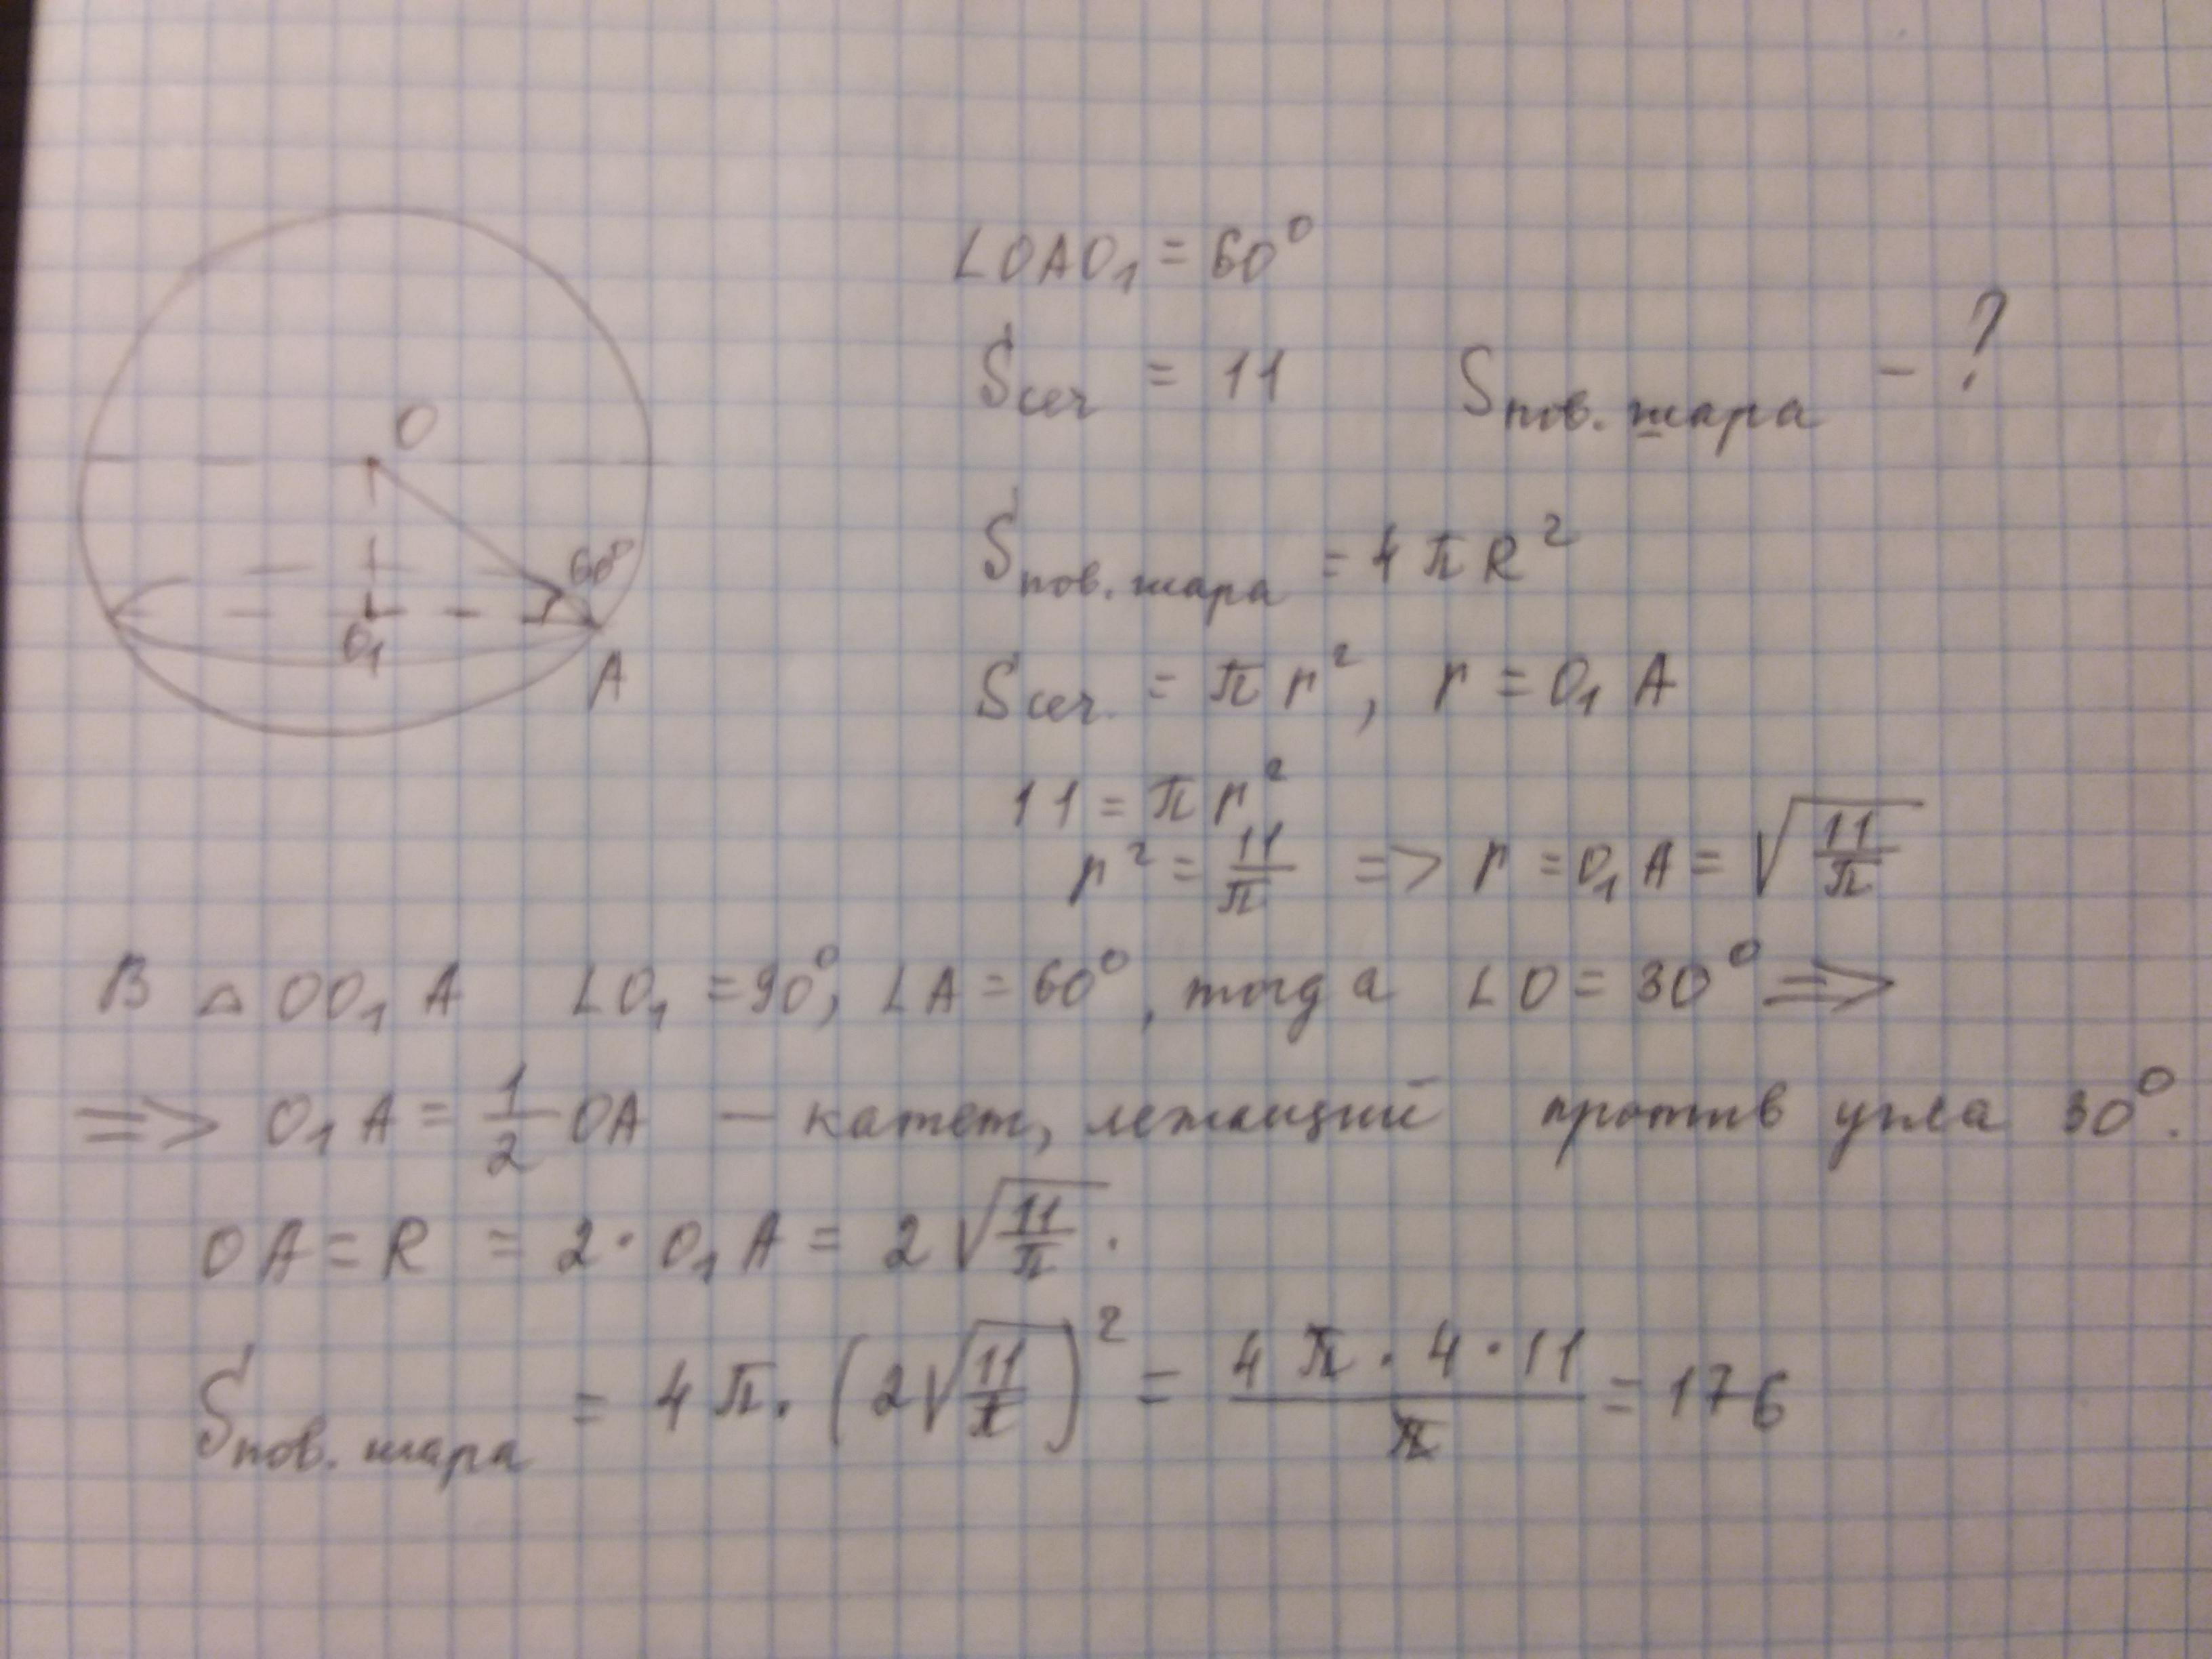 O
60°
O₁
A
∠OAO₁ = 60°
Sсеч = 11 Sпов. шара - ?
Sпов. шара = 4πR²
Sсеч. = πr², r = O₁A
11 = πr²
r² = 11/π => r = O₁A = √(11/π)
В △OO₁A ∠O₁ = 90°, ∠A = 60°, тогда ∠O = 30° =>
=> O₁A = 1/2 OA — катет, лежащий против угла 30°.
OA = R = 2·O₁A = 2√(11/π).
Sпов. шара = 4π·(2√(11/π))² = (4π·4·11)/π = 176